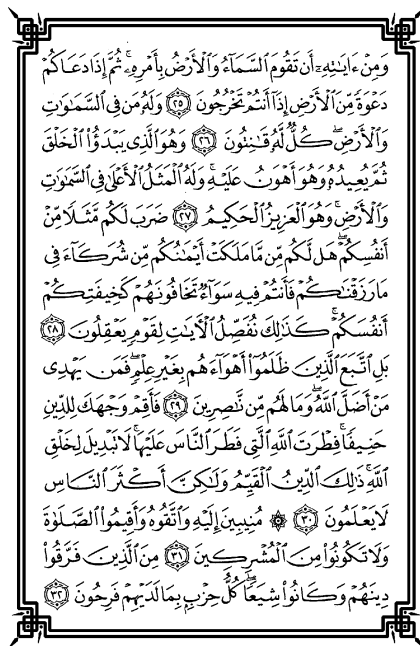 وَمِنْ ءَايَٰتِهِۦٓ أَن تَقُومَ ٱلسَّمَآءُ وَٱلْأَرْضُ بِأَمْرِهِۦۚ ثُمَّ إِذَا دَعَاكُمْ
دَعْوَةً مِّنَ ٱلْأَرْضِ إِذَآ أَنتُمْ تَخْرُجُونَ ٢٥ وَلَهُۥ مَن فِى ٱلسَّمَٰوَٰتِ
وَٱلْأَرْضِۖ كُلٌّ لَّهُۥ قَٰنِتُونَ ٢٦ وَهُوَ ٱلَّذِى يَبْدَؤُا۟ ٱلْخَلْقَ
ثُمَّ يُعِيدُهُۥ وَهُوَ أَهْوَنُ عَلَيْهِۚ وَلَهُ ٱلْمَثَلُ ٱلْأَعْلَىٰ فِى ٱلسَّمَٰوَٰتِ
وَٱلْأَرْضِۚ وَهُوَ ٱلْعَزِيزُ ٱلْحَكِيمُ ٢٧ ضَرَبَ لَكُم مَّثَلًا مِّنْ
أَنفُسِكُمْۖ هَل لَّكُم مِّن مَّا مَلَكَتْ أَيْمَٰنُكُم مِّن شُرَكَآءَ فِى
مَا رَزَقْنَٰكُمْ فَأَنتُمْ فِيهِ سَوَآءٌ تَخَافُونَهُمْ كَخِيفَتِكُمْ
أَنفُسَكُمْۚ كَذَٰلِكَ نُفَصِّلُ ٱلْءَايَٰتِ لِقَوْمٍ يَعْقِلُونَ ٢٨
بَلِ ٱتَّبَعَ ٱلَّذِينَ ظَلَمُوٓا۟ أَهْوَآءَهُم بِغَيْرِ عِلْمٍۖ فَمَن يَهْدِى
مَنْ أَضَلَّ ٱللَّهُۖ وَمَا لَهُم مِّن نَّٰصِرِينَ ٢٩ فَأَقِمْ وَجْهَكَ لِلدِّينِ
حَنِيفًاۚ فِطْرَتَ ٱللَّهِ ٱلَّتِى فَطَرَ ٱلنَّاسَ عَلَيْهَاۚ لَا تَبْدِيلَ لِخَلْقِ
ٱللَّهِۚ ذَٰلِكَ ٱلدِّينُ ٱلْقَيِّمُ وَلَٰكِنَّ أَكْثَرَ ٱلنَّاسِ
لَا يَعْلَمُونَ ٣٠ ۞ مُنِيبِينَ إِلَيْهِ وَٱتَّقُوهُ وَأَقِيمُوا۟ ٱلصَّلَوٰةَ
وَلَا تَكُونُوا۟ مِنَ ٱلْمُشْرِكِينَ ٣١ مِنَ ٱلَّذِينَ فَرَّقُوا۟
دِينَهُمْ وَكَانُوا۟ شِيَعًاۖ كُلُّ حِزْبٍۭ بِمَا لَدَيْهِمْ فَرِحُونَ ٣٢